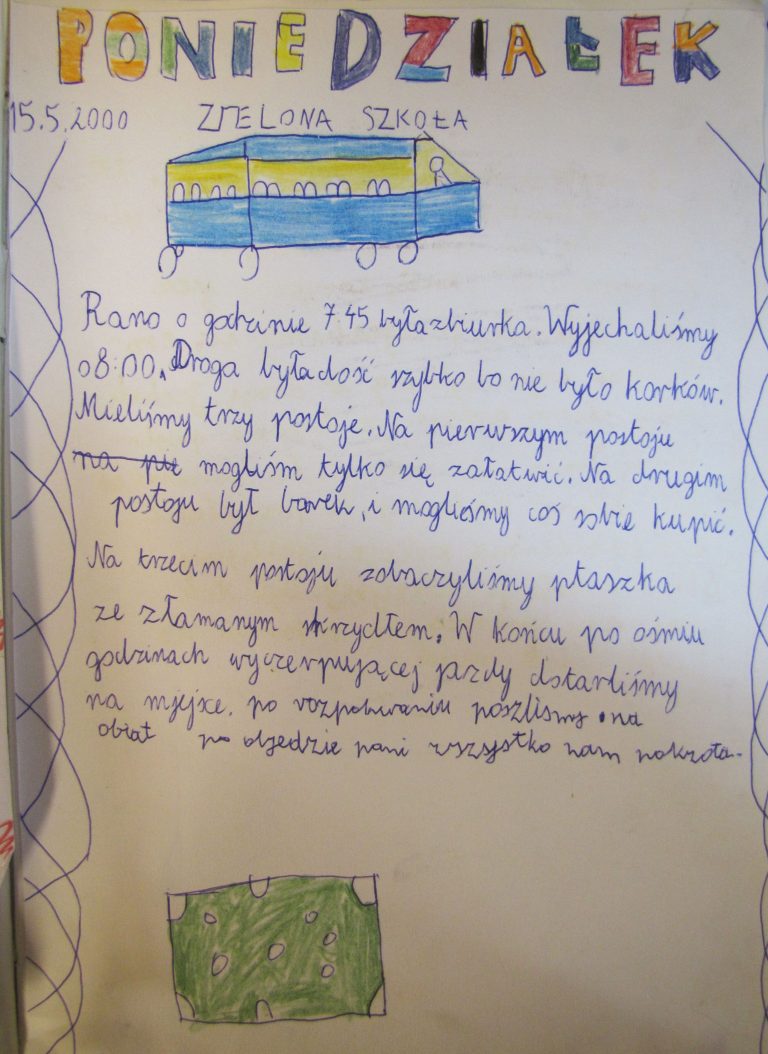 PONIEDZIAŁEK
15.5.2000 ZIELONA SZKOŁA
Rano o godzinie 7 45 była zbiurka. Wyjechaliśmy
o 8:00. Droga była dość szybko bo nie było korków.
Mieliśmy trzy postoje. Na pierwszym postoju
na pie mogliśm tylko się załatwić. Na drugim
postoju był barek, i mogliśmy coś sobie kupić.
Na trzecim postoju zobaczyliśmy ptaszka
ze złamanym skrzydłem. W końcu po ośmiu
godzinach wyczerpującej jazdy dotarliśmy
na miejsce. po rozpakowaniu poszliśmy na
obiat po objedzie pani wszystko nam